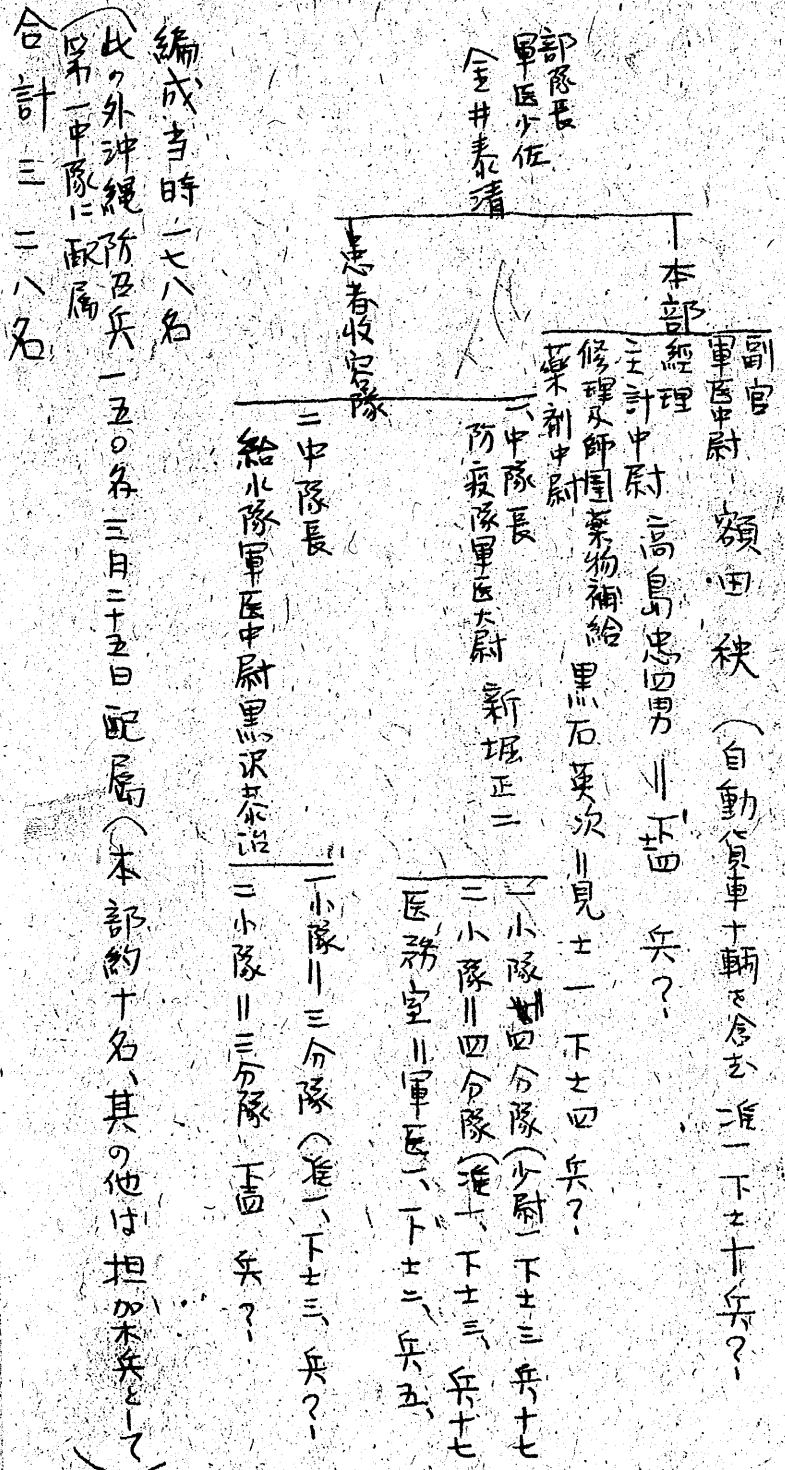 部隊長
軍医少佐
金井泰清
本部
副官
軍医中尉 額田 秧 (自動貨車十輌を含む 准一 下士十 兵?
経理
主計中尉 高島忠四男 = 下士四 兵?
修理及師團薬物補給
薬剤中尉 黒石英次 = 見士一 下士四 兵?
患者收容隊
一、中隊長
防疫隊軍医大尉 新堀正二
一小隊 四分隊(少尉一 下士三 兵十七
二小隊=四分隊(准一、下士三、兵十七
医務室=軍医一、下士二、兵五、
二中隊長
給水隊軍医中尉黒沢恭治
一小隊=三分隊(准一、下士三、兵?
二小隊=三分隊 下士四 兵?
編成当時一七八名
(此の外沖縄防召兵一五〇名三月二十五日配属(本部約十名、其の他は担架兵として
第一中隊に配属)
合計三二八名